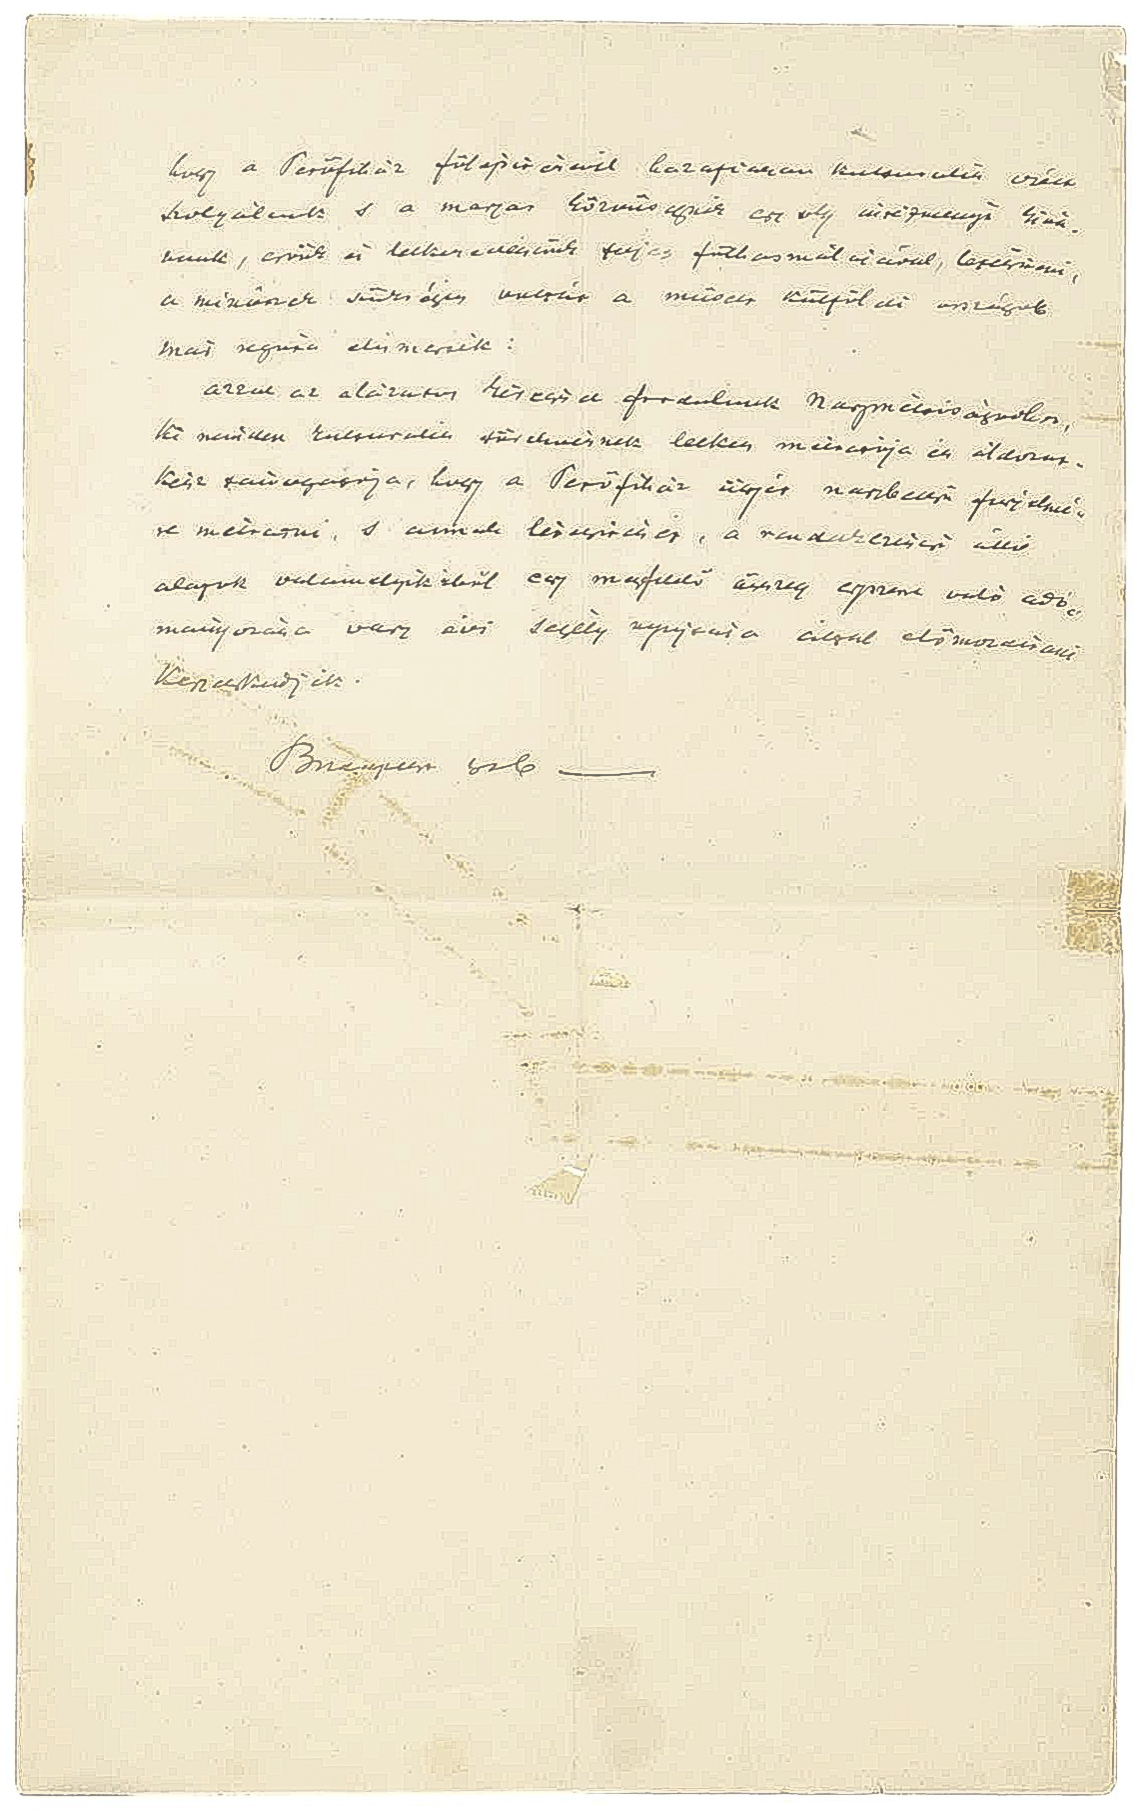 hogy a Petőfiház fölépitésével hazafiasan kulturalis célt
szolgálunk s a magyar közönségnek egy oly intézményt kivá-
nunk, erőnk és lelkesedésünk teljes fölhasználásával, létesíteni,
a minőnek szükséges voltát a müvelt külföldi országok
már régóta elismerték:
azzal az alázatos kéréssel fordulunk Nagyméltóságodhoz,
ki minden kulturalis törekvésnek lelkes méltatója és áldozat-
kész támogatója, hogy a Petőfiház ügyét nagybecsü figyelmé-
re méltatni, s annak létesitését, a rendelkezésére álló
alapok valamelyikéből egy megfelelő összeg egyszeri való ado-
mányozása vagy évi segély nyujtása által előmozditani
kegyeskedjék.
Budapest